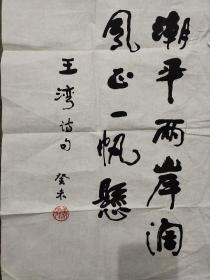 潮平两岸阔
风正一帆懸
王湾诗句 癸未